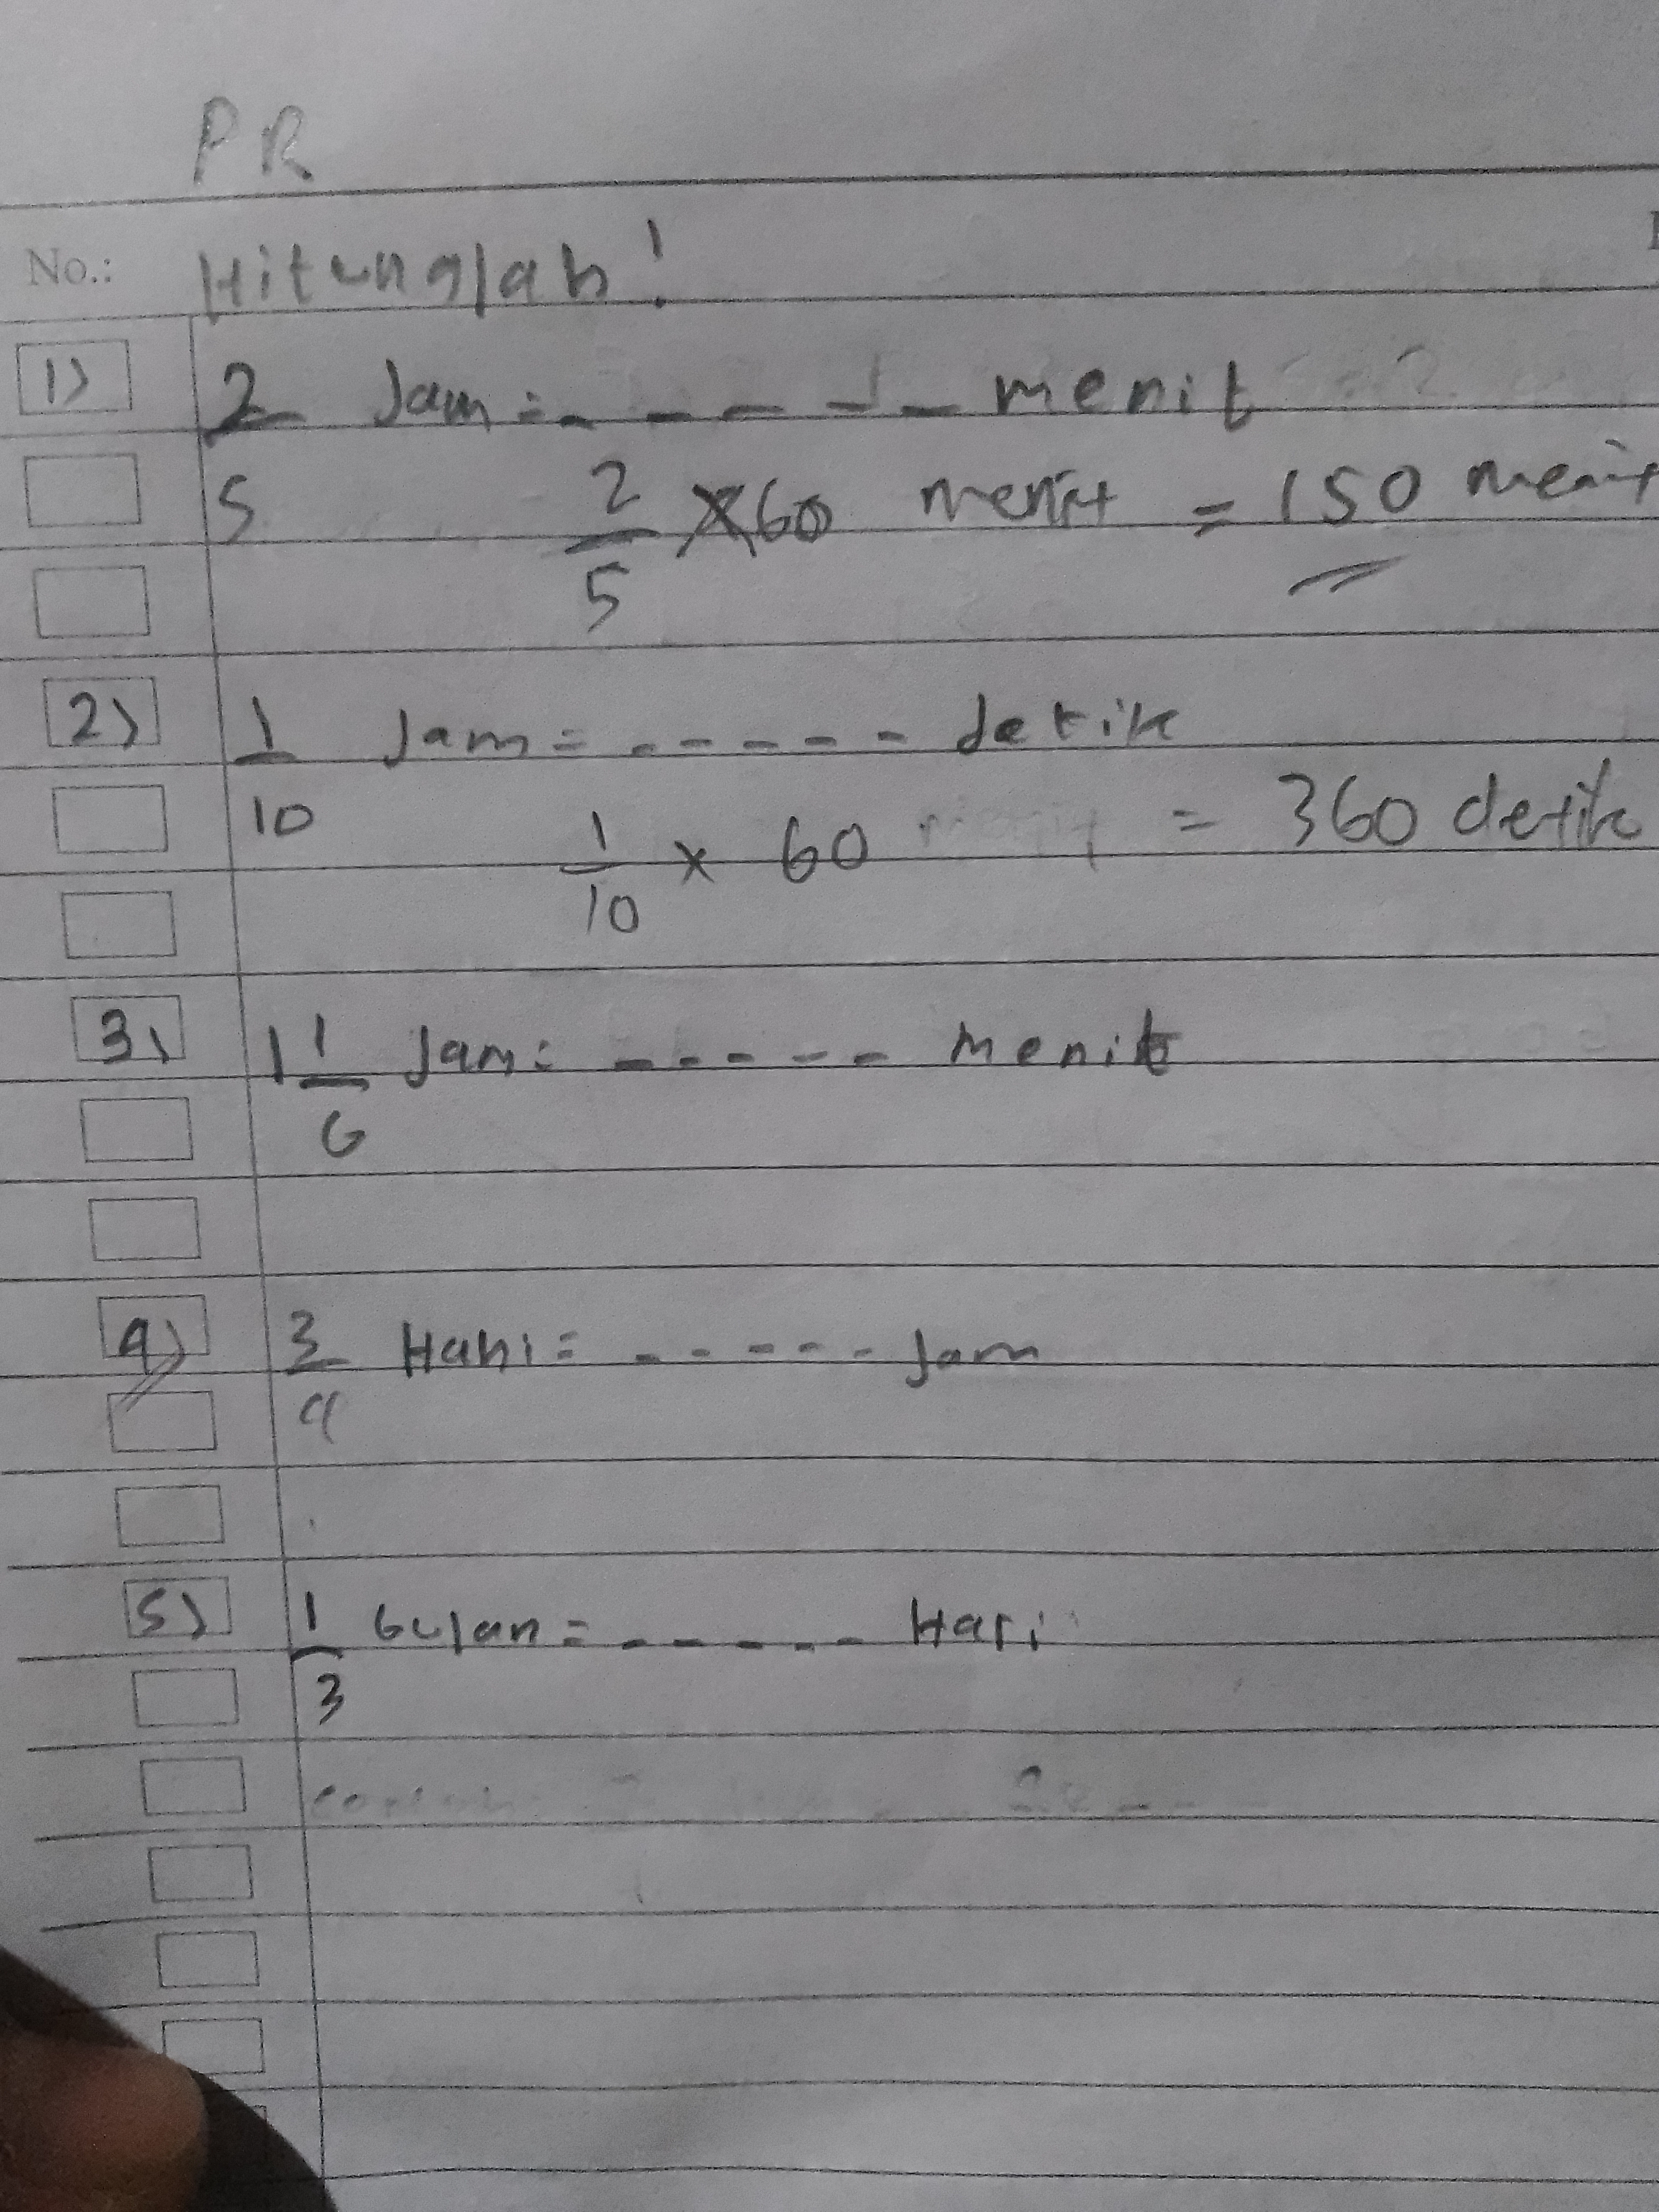 PR
No.: Hitunglah!
1) 2/5 Jam = - - - - - menit
2/5 x 60 menit = 150 menit
2) 1/10 Jam = - - - - - detik
1/10 x 60 = 360 detik
3) 1 1/6 Jam = - - - - - menit
4) 3/4 Hari = - - - - - Jam
5) 1/3 bulan = - - - - - Hari